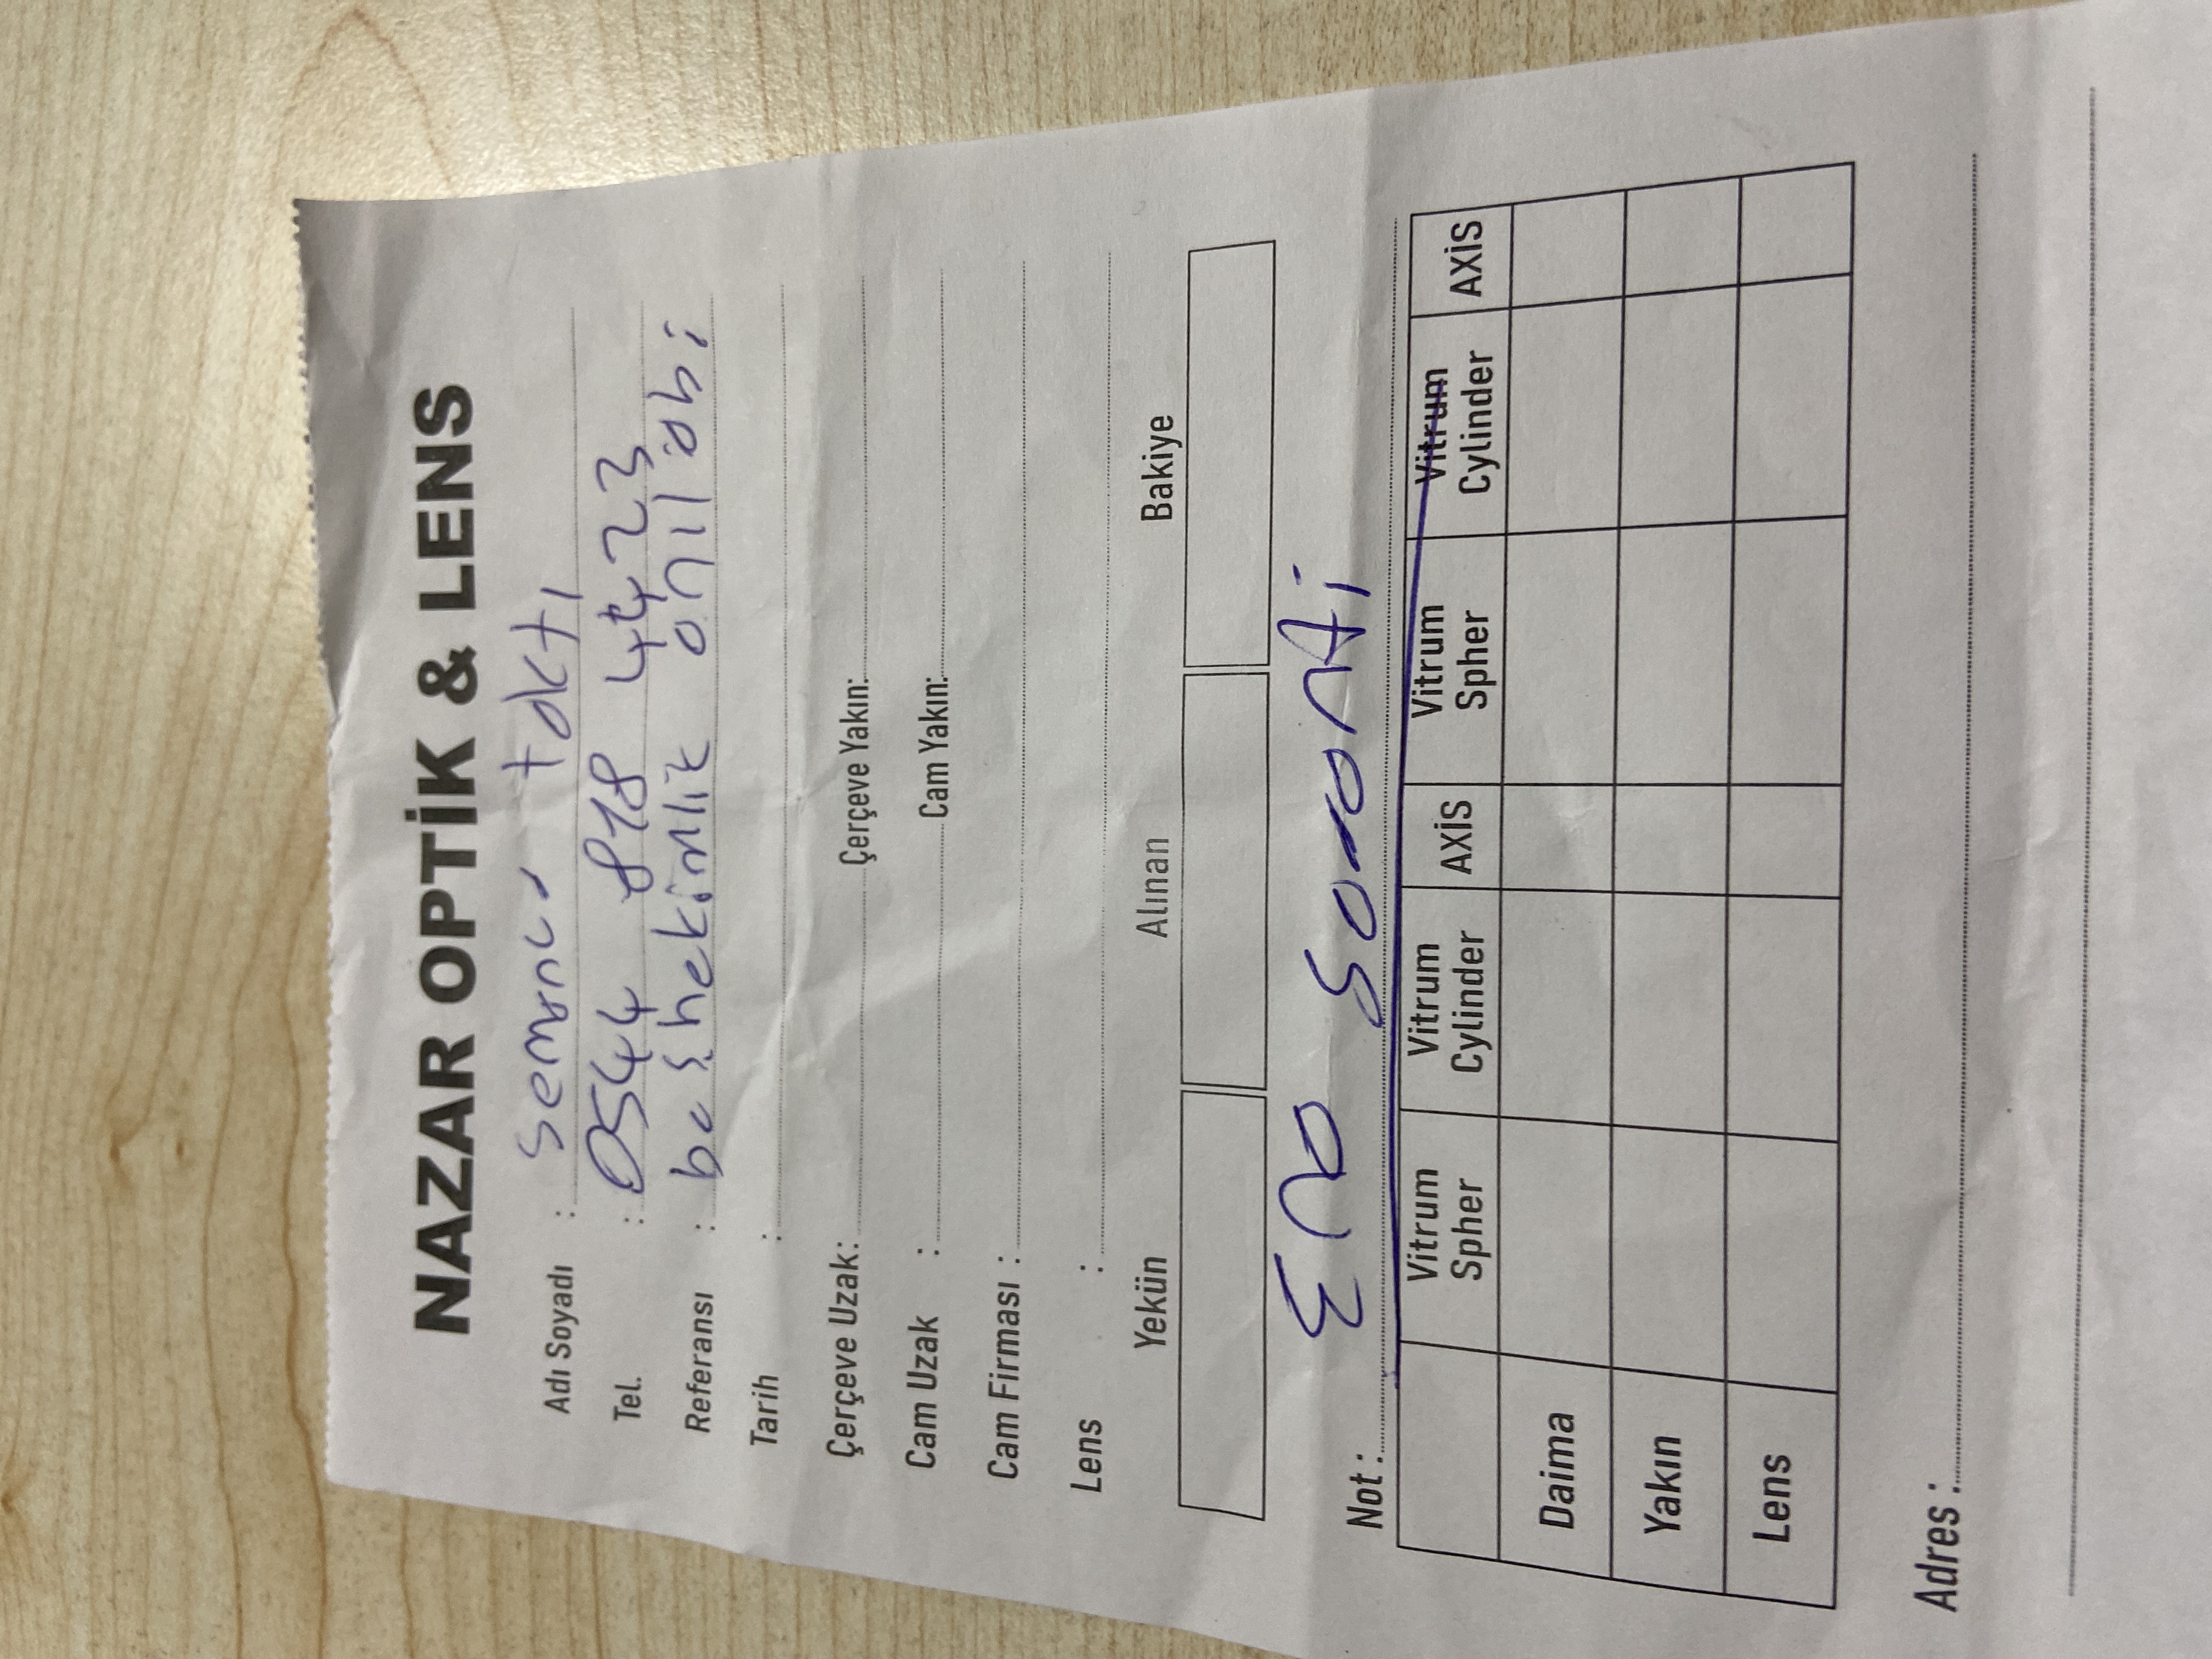 NAZAR OPTİK & LENS
Adı Soyadı : toktı
Tel. : 0544 818 4423
Referansı : başhekimlik anıl abi
Tarih :
Çerçeve Uzak: Çerçeve Yakın:
Cam Uzak : Cam Yakın:
Cam Firması :
Lens :
Yekün Alınan Bakiye
Not : garanti
Vitrum Spher Vitrum Cylinder AXİS Vitrum Spher Vitrum Cylinder AXİS
Daima
Yakın
Lens
Adres :